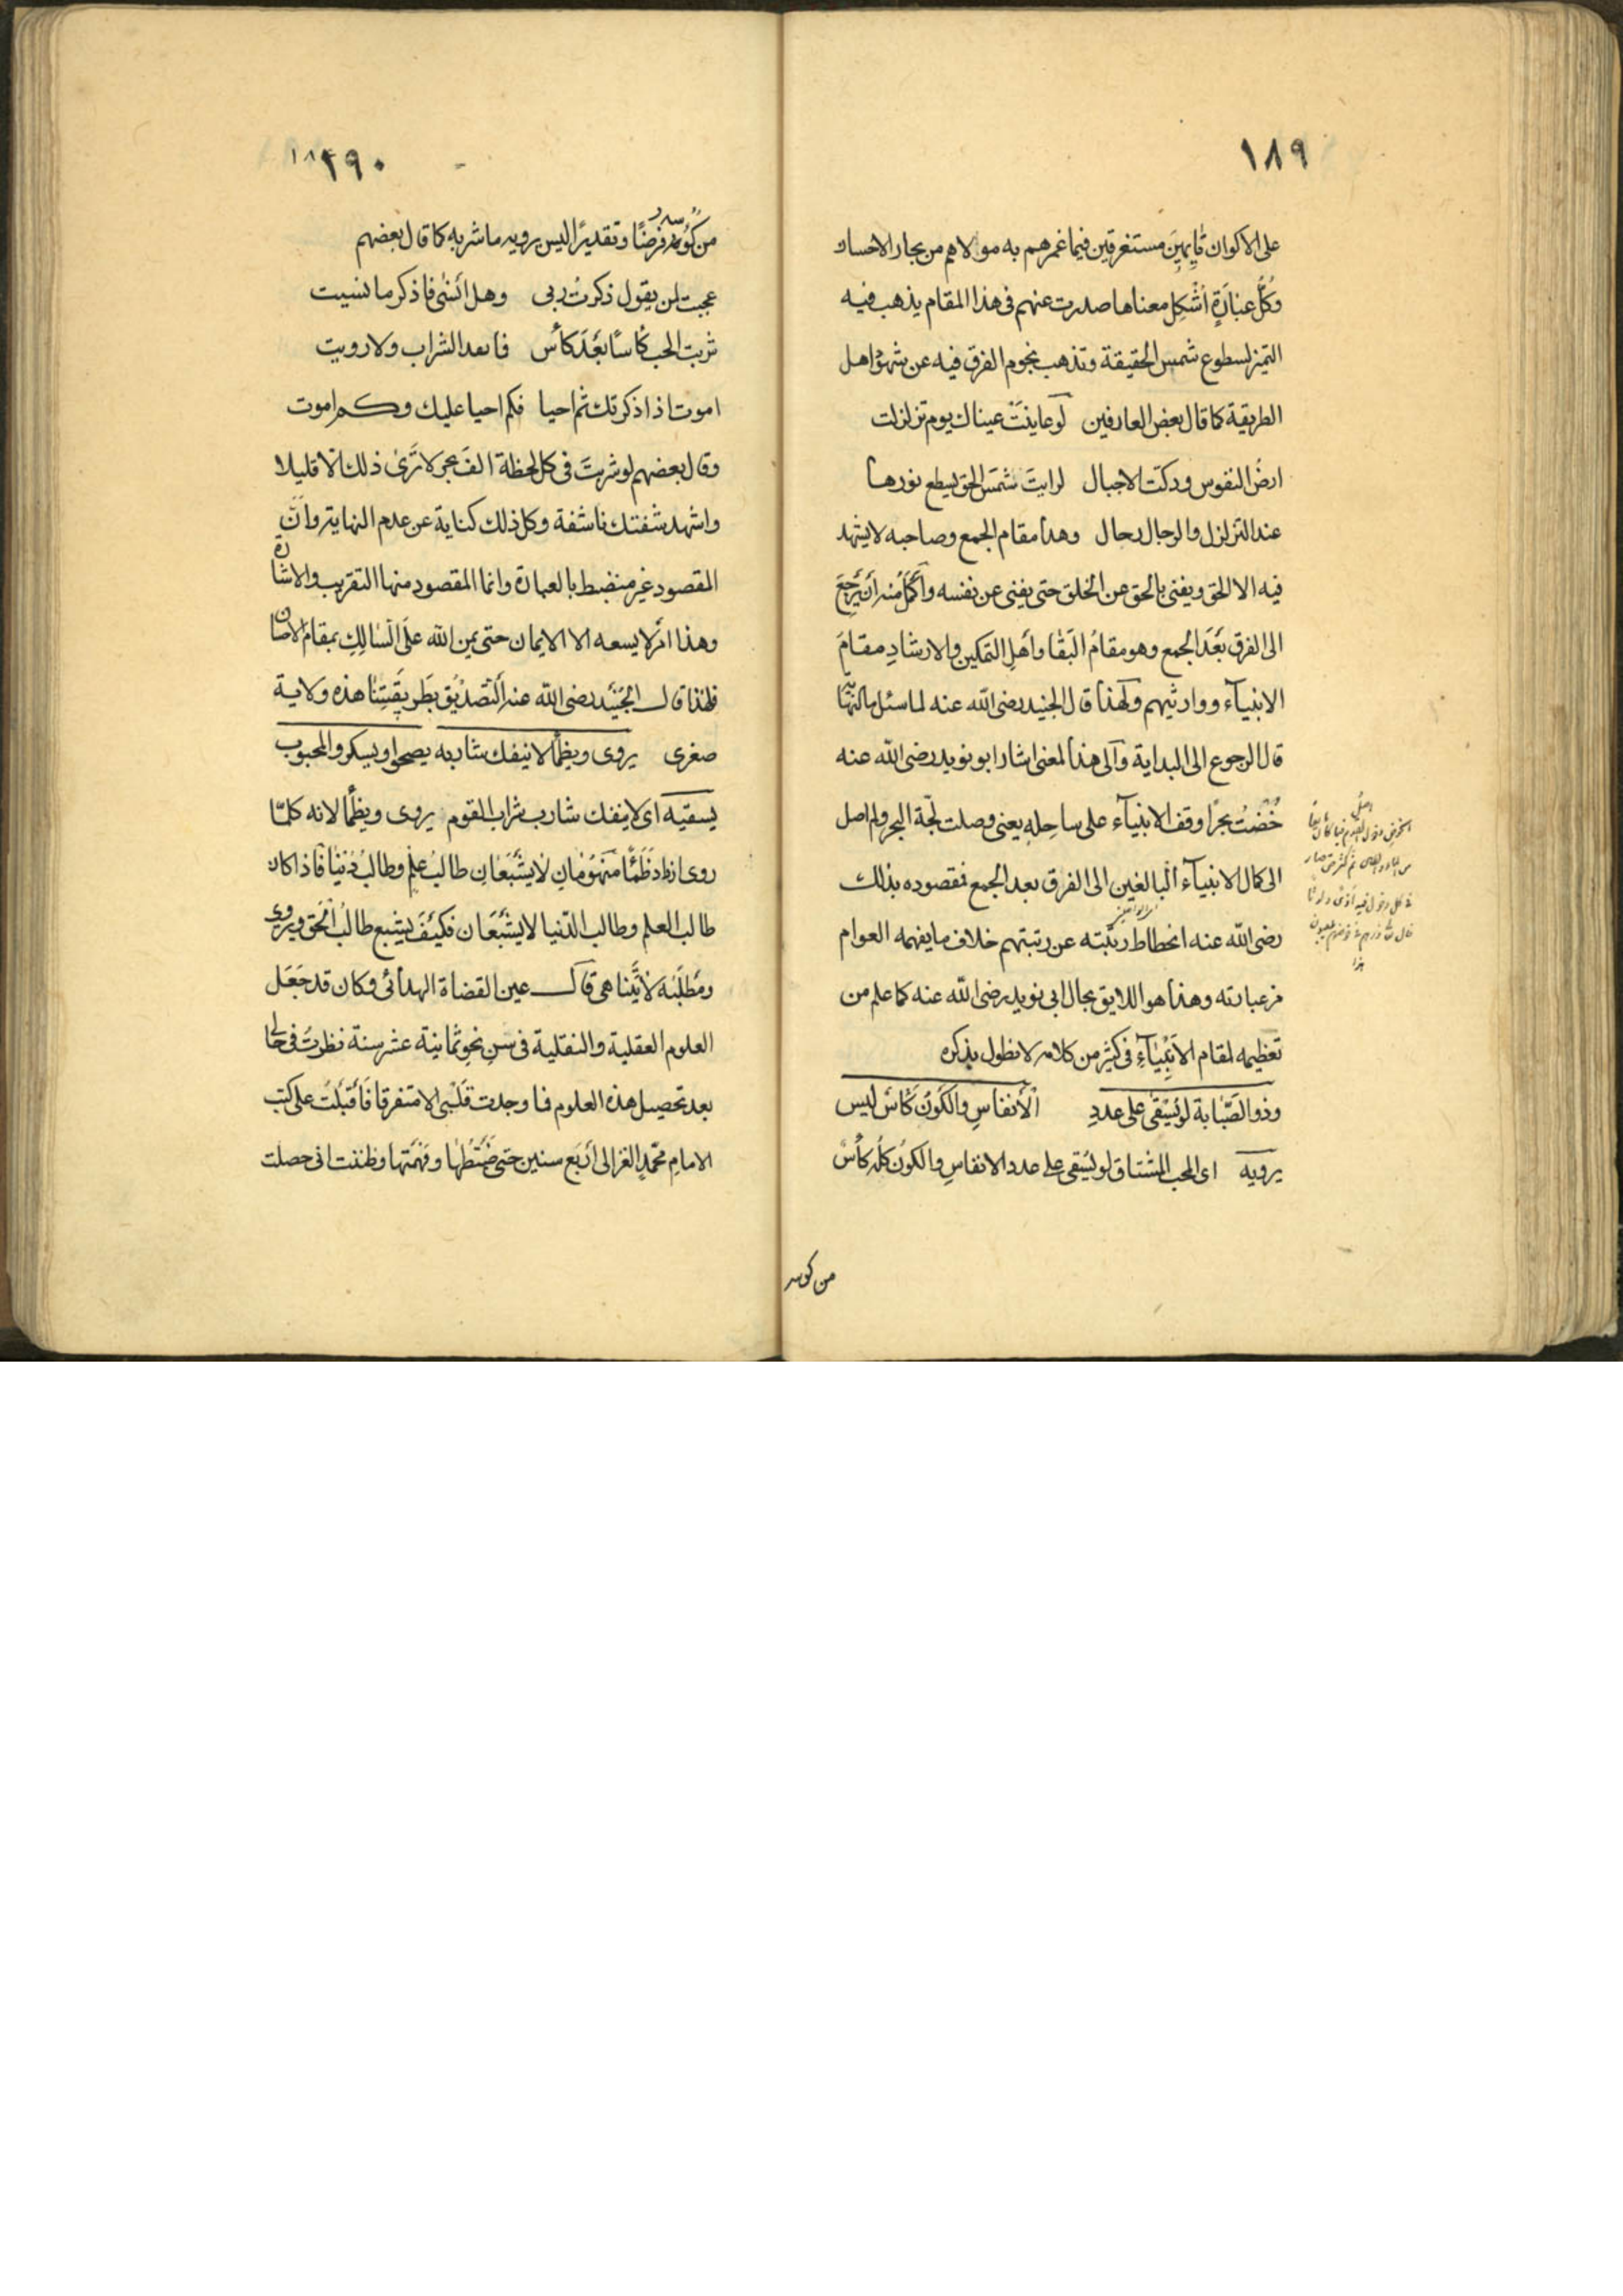 ١٨٩
على الاكوان قايمين مستغرقين فيما غمرهم به مولاهم من بحار الاحسان
وكُلُّ عبارَةٍ أشكِل معناها صدرت عنهم فى هذا المقام يذهب فيه
التميز لسطوع شمس الحقيقة وتذهب نجوم الفرق فيه عن شهود اهل
الطريقة كما قال بعض العارفين لو عاينَتْ عيناك يوم تزلزلت
ارضُ النفوس ودكت الاجبال لرايتَ شمسَ الحق يسطع نورها
عند التزلزل والرجال رجال وهذا مقام الجمع وصاحبه لا يشهد
فيه الا الحق ويفنى بالحق عن الخلق حتى يفنى عن نفسه وأكمَلُ منه أن يَرجعَ
الى الفرق بَعْدَ الجمع وهو مقامُ البَقَا واَهْلِ التمكين والارشادِ مقامَ
الانبيآء ووارثيهم ولهذا قال الجنيد رضى الله عنه لما سئل ما النهايّة
قال الرجوع الى البداية وآلى هذا المعنى اشار ابو نويد رضى الله عنه
خُضتُ بحرًا وقف الانبيآء على ساحِلِه يعنى وصلت لجّة البحر ولم اصل
الى كمال الانبيآء البالغين الى الفرق بعد الجمع فقصوده بذلك
رضى الله عنه انحطاط ربّبته عن رتبتهم خلاف ما يفهمه العوام
من عبارته وهذا هو اللايق بحال ابى نويد رضى الله عنه كما علم من
تعظيمه لمقام الاَنْبِيَآءِ فى كثير من كلامه لا نطول بذكره
وذو الصَّبابة لو يُسْقى على عددِ الأنفاسِ والكَونُ كَأسٌ ليس
يرويه اى المحب المشتاق لو يُسقى على عدد الانفاسِ والكونُ كلُه كأسٌ
من كوسه
١٩٠
من كُوسه فرضًا وتقديرًا ليس يرويه ما شربه كما قال بعضهم
عجبت لمن يقول ذكرتُ ربى وهل انسٰى فاذكر ما نسيت
شربت الحب كأسًا بَعْدَ كأس فما نعد الشراب ولا رويت
اموت اذا ذكرتك ثم احيا فكم احيا عليك وكم اموت
وقال بعضهم لو شربتَ فى كل لحظة الفَ بحر لا تَرَىٰ ذلك الّا قليلا
واشهد شفتك ناشفة وكل ذلك كناية عن عدم النهاية وانّ
المقصود غير منضبط بالعبارة وانما المقصود منها التقريب والاشارة
وهذا امرٌ لا يسعه الا الايمان حتى يمن الله علَى السالكِ بمقام الاحسان
فلهذا قال الجُنَيْد رضى الله عنه التصديق بطريقتنا هذه ولاية
صغرى يروى ويظمأ لا ينفك شاربه يصحو او يسكر والمحبوب
يسقيه اى لا ينفك شارب شراب القوم يروى ويظمأ لانه كلمّا
روى ازداد ظَمَئًا منهُومانِ لا يَشبَعَانِ طالبُ علمٍ وطالبُ دُنيَا فاذا كان
طالب العلم وطالب الدّنيا لا يشْبَعَان فكيفَ يشبع طالبُ الحق ويروى
ومَطلَبُه لا يَتَناهى قال عين القضاة الهدانى وكان قد جَعَل
العلوم العقلية والنقلية فى سنِ نحوِ ثمانية عشر سنة نظرتُ فى حالى
بعد تحصيل هذه العلوم فما وجدت قَلبى الا متفرقا فَأقبَلتُ على كتب
الامامِ محمّدٍ الغزالى أربَع سنين حتى ضبطتُها وفهمتها وظننت انى حصلت